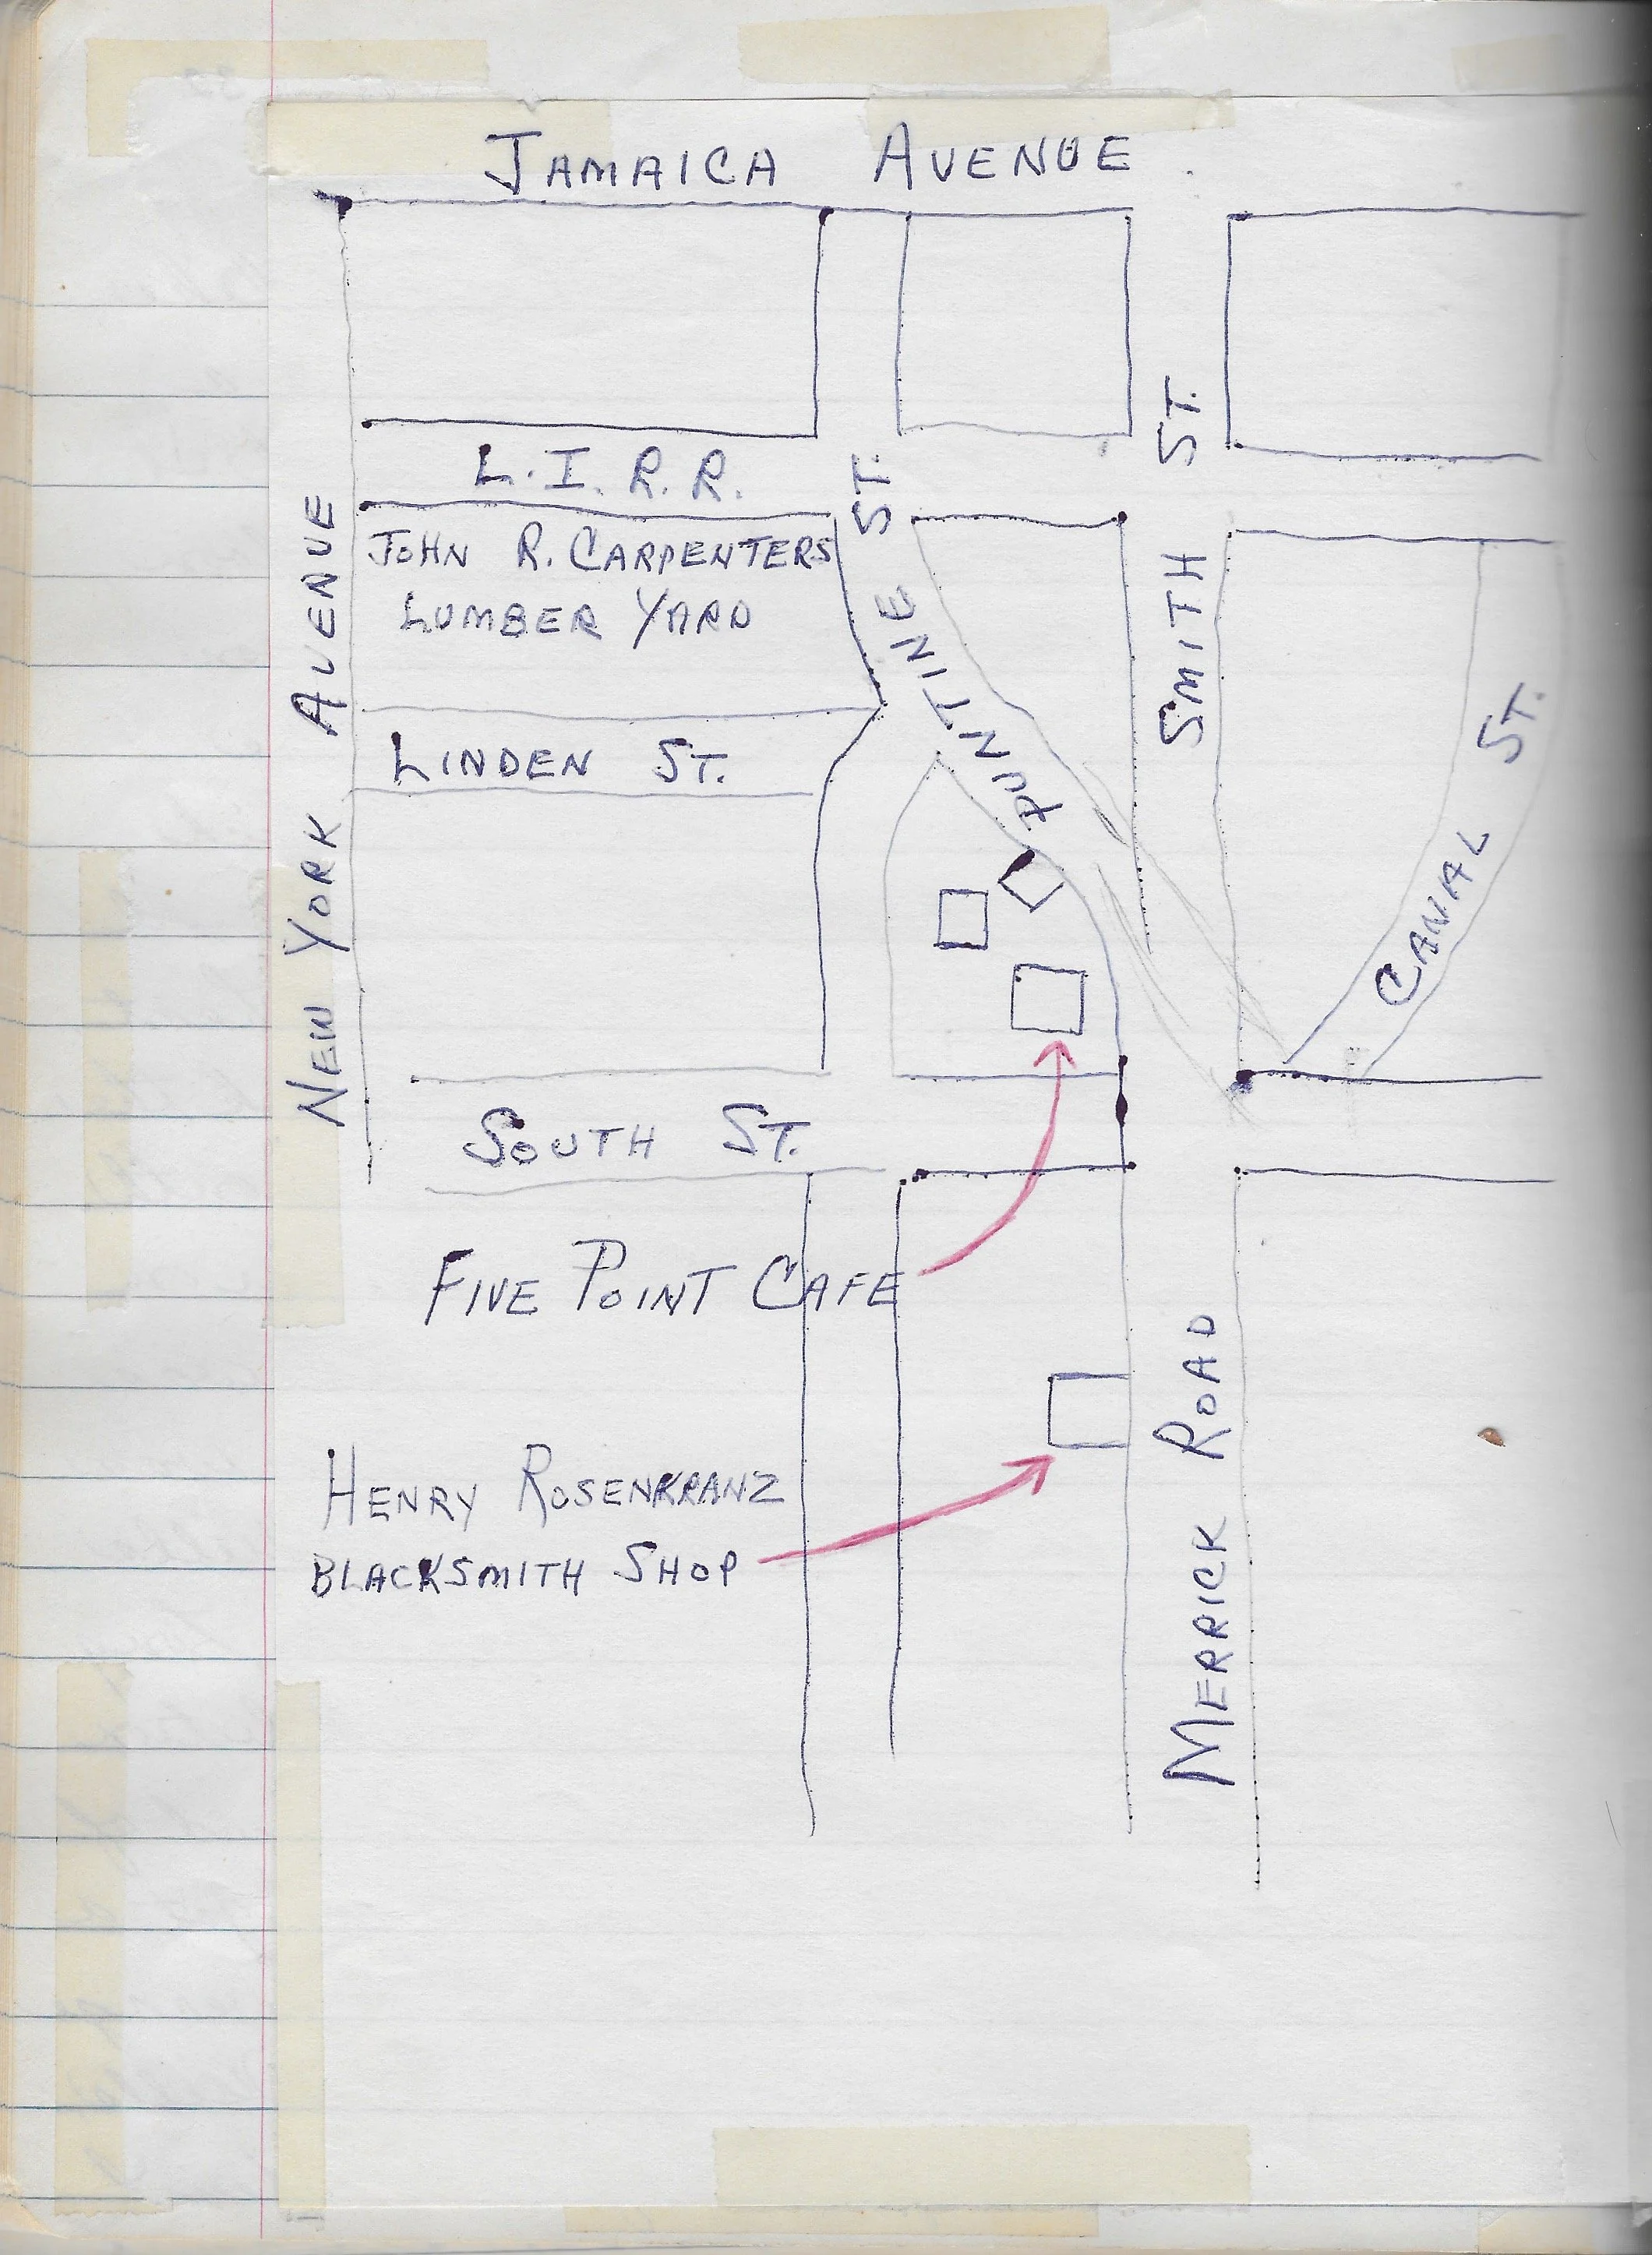 JAMAICA AVENUE
L. I. R. R.
JOHN R. CARPENTERS
LUMBER YARD
LINDEN ST.
NEW YORK AVENUE
PUNTINE ST.
SMITH ST.
CANAL ST.
SOUTH ST.
FIVE POINT CAFE
HENRY ROSENKRANZ
BLACKSMITH SHOP
MERRICK ROAD